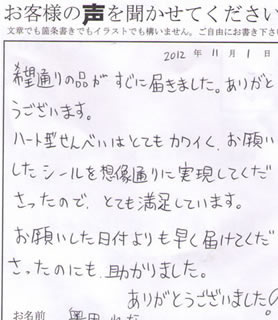 お客様の声を聞かせてください
文章でも箇条書きでもイラストでも構いません。ご自由にお書き下さい
2012 年 11 月 1 日
希望通りの品がすぐに届きました。ありがと
うございます。
ハート型せんべいはとてもカワイく、お願い
したシールを想像通りに実現してくだ
さったので、とても満足しています。
お願いした日付よりも早く届けてくだ
さったのにも、助かりました。
ありがとうございました
お名前